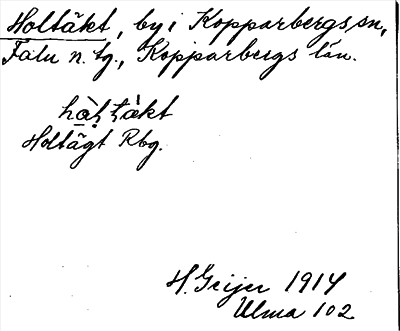 Holtäkt, by i Kopparbergs sn,
Falu n. tg., Kopparbergs län.
hὰḷṭὰkt
Holtägt Rbg.
H. Geijer 1914
Ulma 102